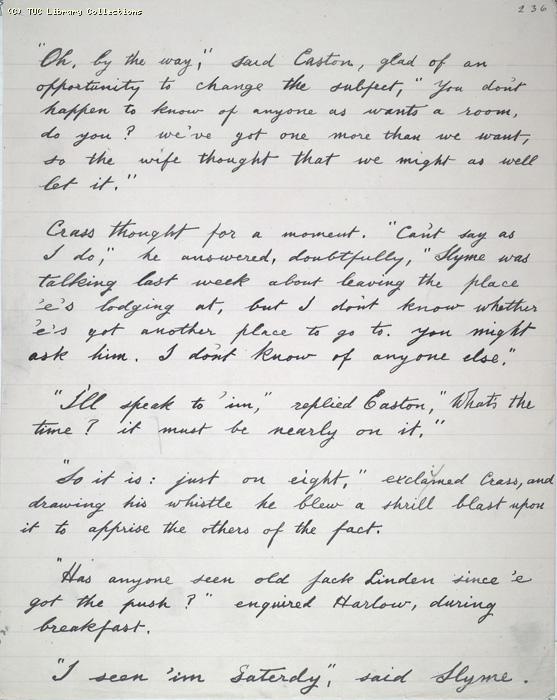 (C) TUC Library Collections
236
"Oh, by the way", said Easton, glad of an
opportunity to change the subject, "You don't
happen to know of anyone as wants a room,
do you? we've got one more than we want,
so the wife thought that we might as well
let it."
Crass thought for a moment. "Can't say as
I do", he answered, doubtfully, "Slyme was
talking last week about leaving the place
'e's lodging at, but I don't know whether
'e's got another place to go to. You might
ask him. I don't know of anyone else."
"I'll speak to 'im," replied Easton, "Whats the
time? it must be nearly on it."
"So it is: just on eight," exclaimed Crass, and
drawing his whistle he blew a shrill blast upon
it to apprise the others of the fact.
"Has anyone seen old Jack Linden since 'e
got the push?" enquired Harlow, during
breakfast.
"I seen 'im Saterdy", said Slyme.